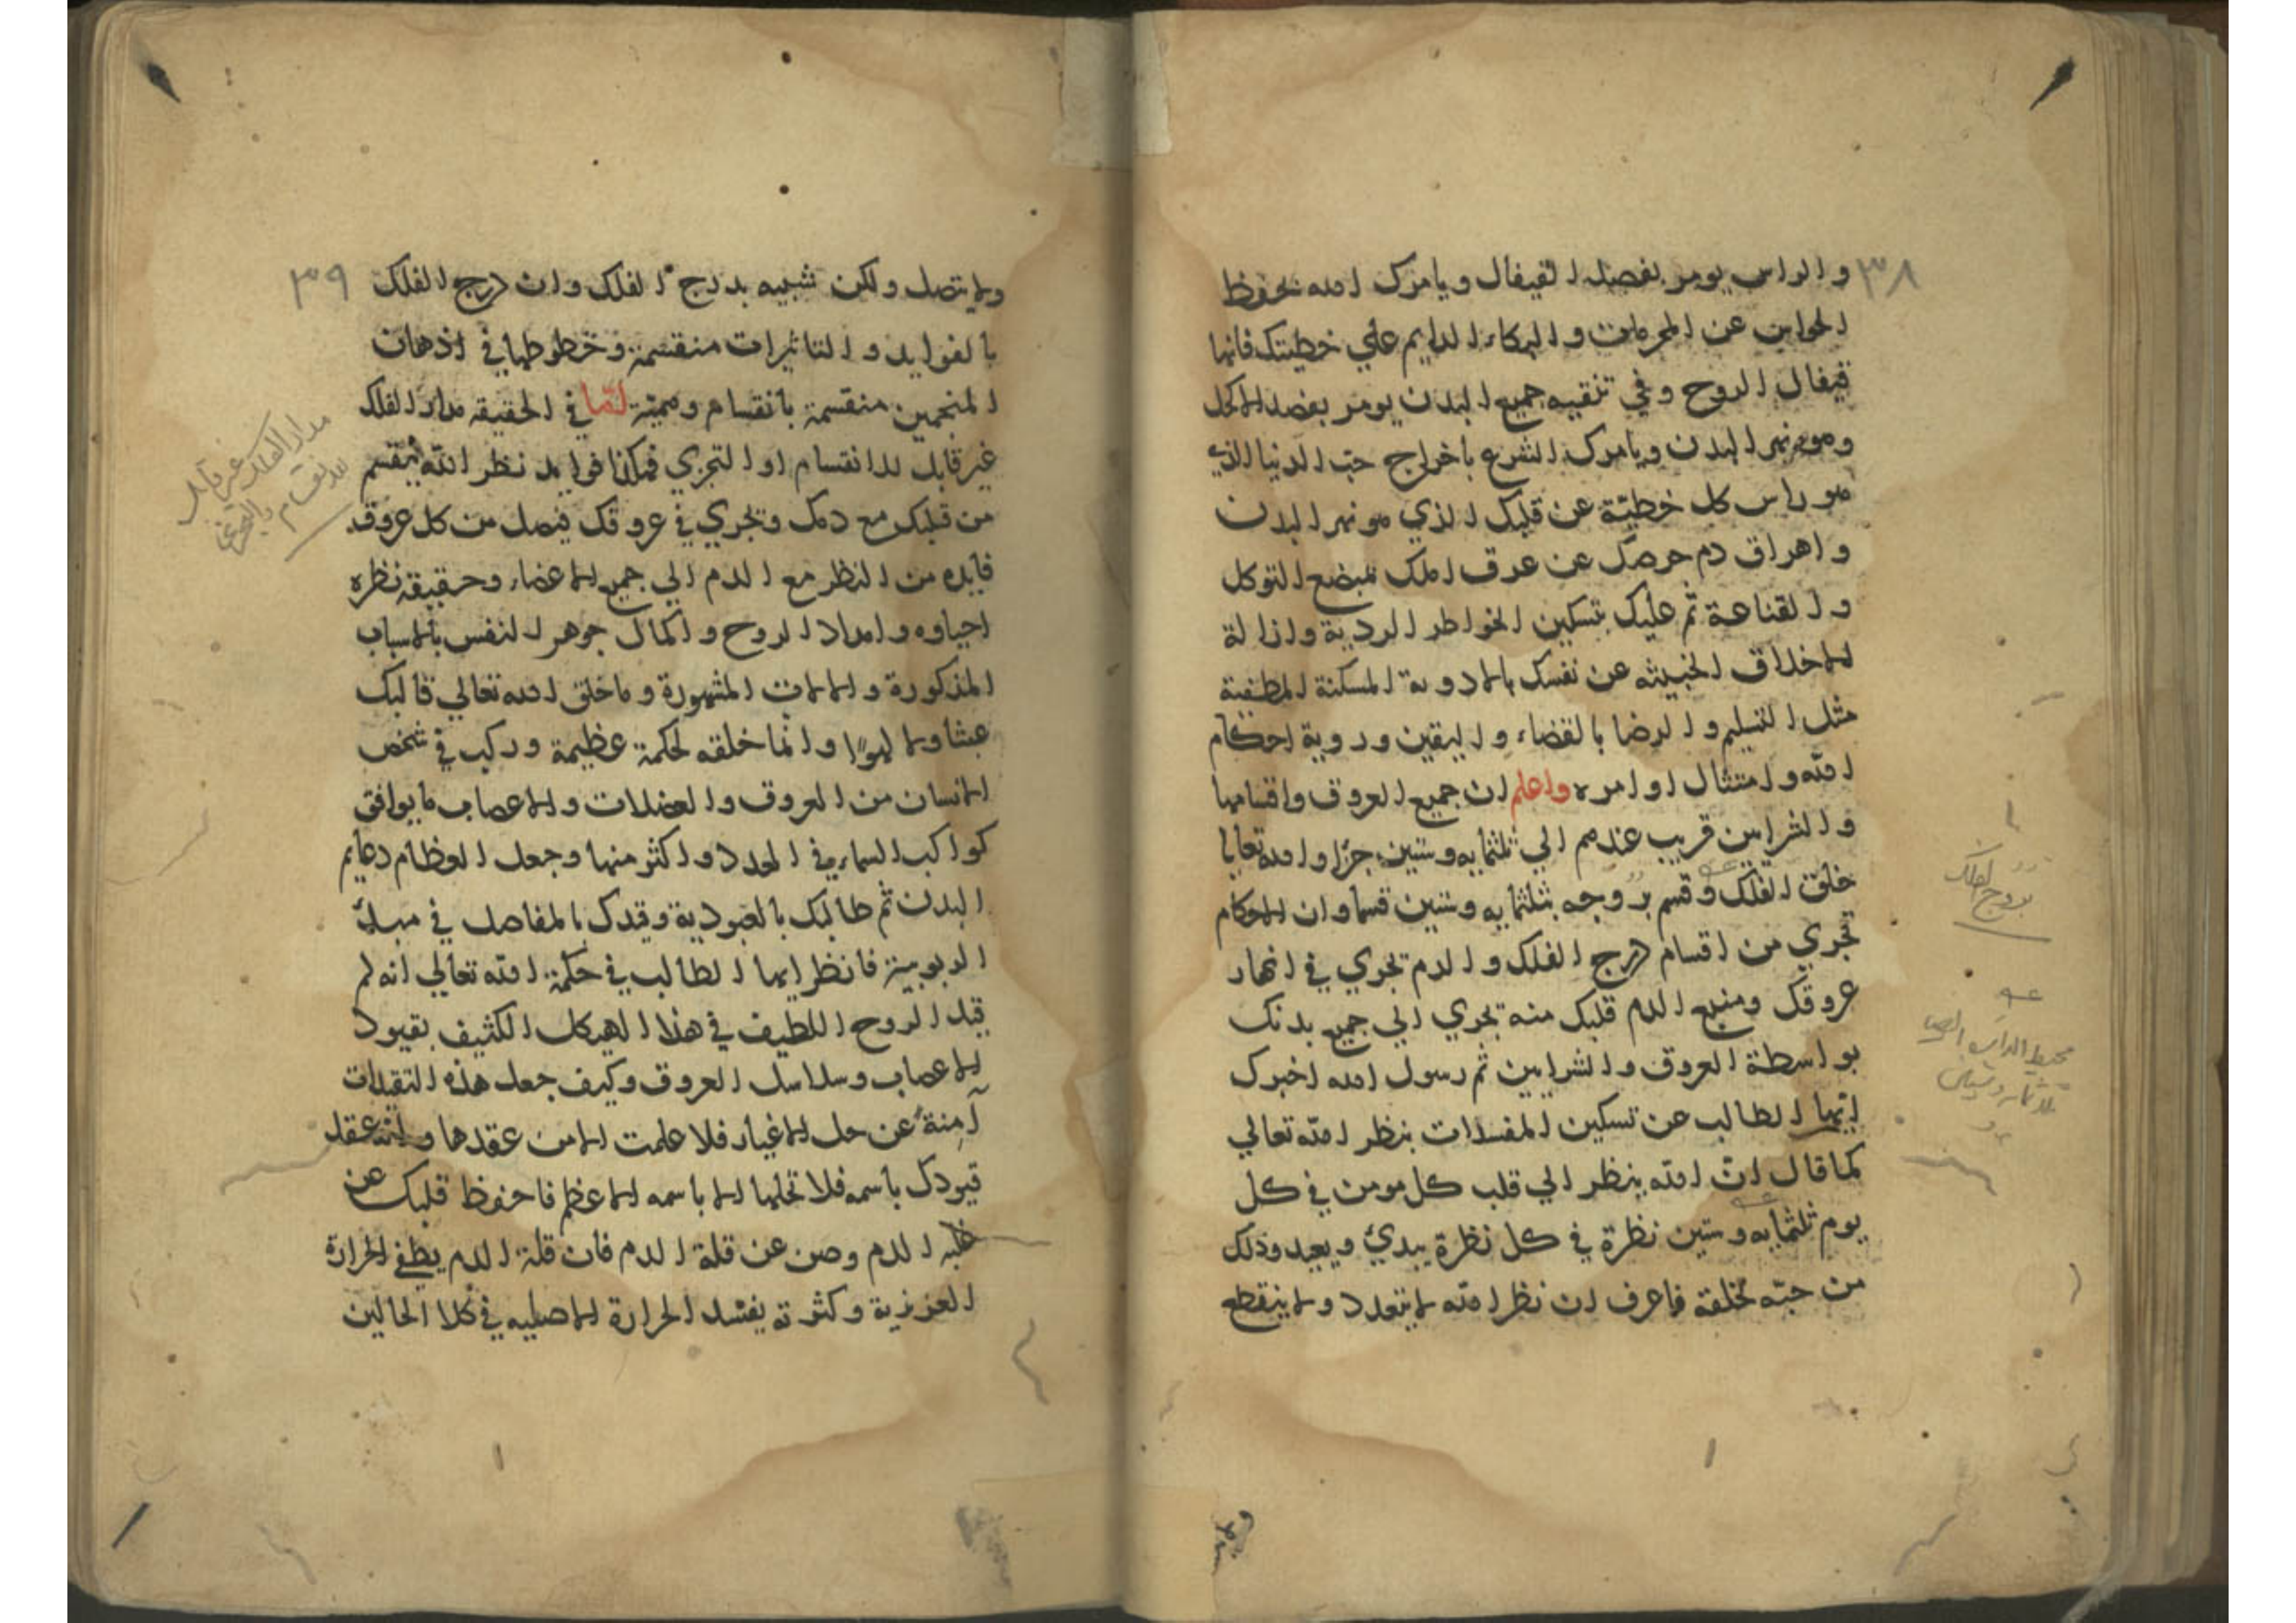 ٣٨
والراس يومر بفصد القيفال ويامرك الله بحفظ
الحواس عن المحرمات والبكاء الدايم علي خطيتك فانها
قيفال الروح وفي تنقيه جميع البدن يومر بفصد الاكحل
وهو نهر البدن ويامرك الشرع باخراج حب الدنيا الذي
هو راس كل خطيئة عن قلبك الذي هو نهر البدن
واهراق دم حرصك عن عرق املك بمبضع التوكل
والقناعة ثم عليك بتسكين الخواطر الردية وازالة
الاخلاق الخبيثه عن نفسك بالادوية المسكنة المطفية
مثل التسليم والرضا بالقضاء واليقين وروية احكام
الله وامتثال اوامره واعلم ان جميع العروق واقسامها
والشراين قريب عندهم الي ثلثمايه وستين جزا والله تعالي
خلق الفلك وقسم بروجه بثلثمايه وستين قسما وان الاحكام
تجري من اقسام درج الفلك والدم تجري في انهار
عروقك ومنبع الدم قلبك منه تجري الي جميع بدنك
بواسطة العروق والشرايين ثم رسول الله اخبرك
ايها الطالب عن تسكين المفسدات بنظر الله تعالي
كما قال ان الله ينظر الي قلب كل مومن في كل
يوم ثلثمايه وستين نظرة في كل نظرة يبدئ ويعيد وذلك
من حبه لخلقه فاعرف ان نظر الله لا يتعدد ولا ينقطع
بروج الفلك
محيط الدائرة
٣٩
ولا يتصل ولكن شبيه بدرج الفلك وان درج الفلك
بالفوايد والتاثيرات منقسمة وخطوطها في اذهان
المنجمين منقسمة بانقسام وهمية لما في الحقيقه مدار الفلك
غير قابل للانقسام او التجزي فكذا فوايد نظر الله ينقسم
من قلبك مع دمك وتجري في عروقك فيصل من كل عروق
فايده من النظر مع الدم الي جميع الاعضاء وحقيقة نظره
احياوه وامداد الروح واكمال جوهر النفس بالاسباب
المذكورة والالات المشهورة وما خلق الله تعالي قالبك
عبثا ولا لهوا وانما خلقه لحكمة عظيمة وركب في شخص
الانسان من العروق والعضلات والاعصاب ما يوافق
كواكب السماء في العدد واكثر منها وجعل العظام دعايم
البدن ثم طالبك بالعبودية وقيدك بالمفاصل في
الربوبية فانظر ايها الطالب في حكمة الله تعالي انه لم
قيد الروح اللطيف في هذا الهيكل الكثيف بقيود
الاعصاب وسلاسل العروق وكيف جعل هذه التقيدات
آمنة عن حل الاغيار فلا علمت الا من عقدها وانه عقد
قيودك باسمه فلا تحلها الا باسمه الاعظم فاحفظ قلبك عن
غلبه الدم وصن عن قلة الدم فان قلة الدم يطفي الحرارة
الغريزية وكثرته يفسد الحرارة الاصليه في كلا الحالين
مدار الفلك غير قابل
للانقسام والتجزي